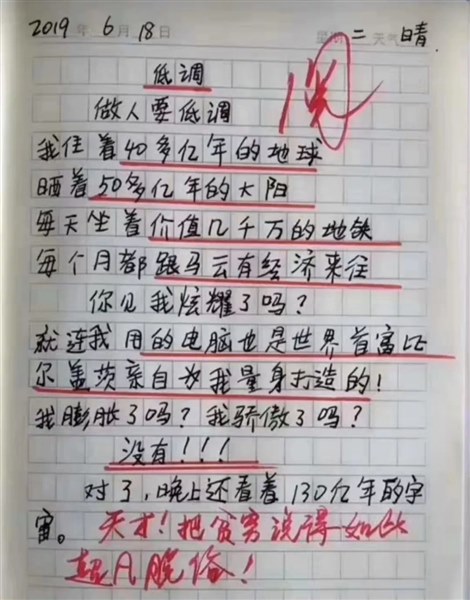 2019年6月18日 星期二 天气晴
阅
低调
做人要低调
我住着40多亿年的地球
晒着50多亿年的太阳
每天坐着价值几千万的地铁
每个月都跟马云有经济来往
你见我炫耀了吗?
就连我用的电脑也是世界首富比
尔盖茨亲自为我量身打造的!
我膨胀了吗?我骄傲了吗?
没有!!!
对了,晚上还看着130亿年的宇
宙。天才!把贫穷说得如此
超凡脱俗!